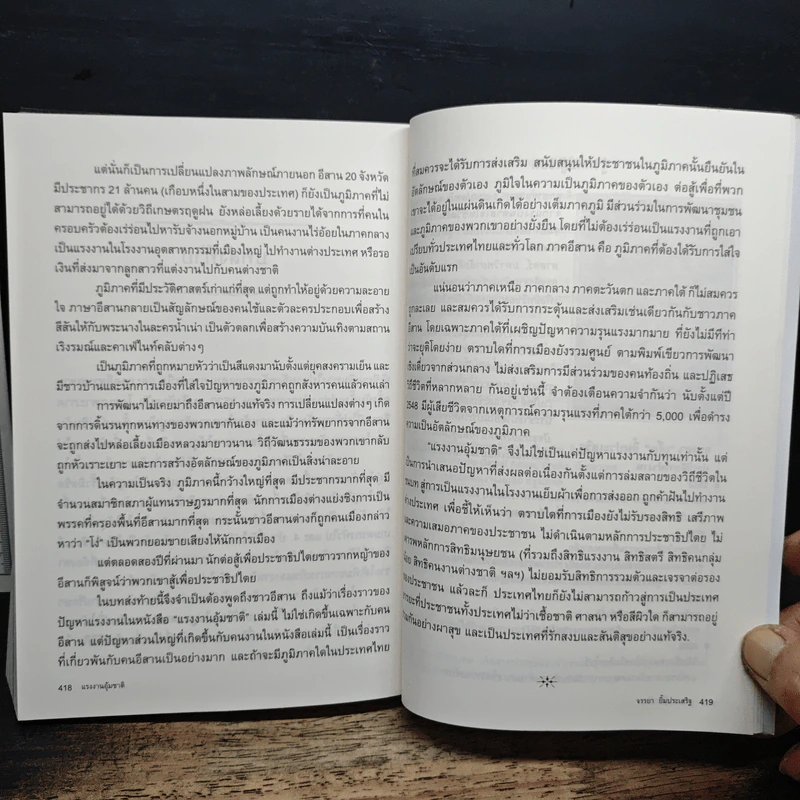 แต่นั่นก็เป็นการเปลี่ยนแปลงภาพลักษณ์ภายนอก อีสาน 20 จังหวัด
มีประชากร 21 ล้านคน (เกือบหนึ่งในสามของประเทศ) ก็ยังเป็นภูมิภาคที่ไม่
สามารถอยู่ได้ด้วยวิถีเกษตรฤดูฝน ยังหล่อเลี้ยงด้วยรายได้จากการที่คนใน
ครอบครัวต้องเร่ร่อนไปหารับจ้างนอกหมู่บ้าน เป็นคนงานไร่อ้อยในภาคกลาง
เป็นแรงงานในโรงงานอุตสาหกรรมที่เมืองใหญ่ ไปทำงานต่างประเทศ หรือรอ
เงินที่ส่งมาจากลูกสาวที่แต่งงานไปกับคนต่างชาติ
ภูมิภาคที่มีประวัติศาสตร์เก่าแก่ที่สุด แต่ถูกทำให้อยู่ด้วยความละอาย
ใจ ภาษาอีสานกลายเป็นสัญลักษณ์ของคนใช้และตัวละครประกอบเพื่อสร้าง
สีสันให้กับพระนางในละครน้ำเน่า เป็นตัวตลกเพื่อสร้างความบันเทิงตามสถาน
เริงรมณ์และคาเฟ่ไนท์คลับต่างๆ
เป็นภูมิภาคที่ถูกหมายหัวว่าเป็นสีแดงมานับตั้งแต่ยุคสงครามเย็น และ
มีชาวบ้านและนักการเมืองที่ใส่ใจปัญหาของภูมิภาคถูกสังหารคนแล้วคนเล่า
การพัฒนาไม่เคยมาถึงอีสานอย่างแท้จริง การเปลี่ยนแปลงต่างๆ เกิด
จากการดิ้นรนทุกหนทางของพวกเขากันเอง และแม้ว่าทรัพยากรจากอีสาน
จะถูกส่งไปหล่อเลี้ยงเมืองหลวงมายาวนาน วิถีวัฒนธรรมของพวกเขากลับ
ถูกหัวเราะเยาะ และการสร้างอัตลักษณ์ของภูมิภาคเป็นสิ่งน่าละอาย
ในความเป็นจริง ภูมิภาคนี้กว้างใหญ่ที่สุด มีประชากรมากที่สุด มี
จำนวนสมาชิกสภาผู้แทนราษฎรมากที่สุด นักการเมืองต่างแย่งชิงการเป็น
พรรคที่ครองพื้นที่อีสานมากที่สุด กระนั้นชาวอีสานต่างก็ถูกคนเมืองกล่าว
หาว่า “โง่” เป็นพวกยอมขายเสียงให้นักการเมือง
แต่ตลอดสองปีที่ผ่านมา นักต่อสู้เพื่อประชาธิปไตยชาวรากหญ้าของ
อีสานก็พิสูจน์ว่าพวกเขาสู้เพื่อประชาธิปไตย
ในบทส่งท้ายนี้จึงจำเป็นต้องพูดถึงชาวอีสาน ถึงแม้ว่าเรื่องราวของ
ปัญหาแรงงานในหนังสือ “แรงงานอุ้มชาติ” เล่มนี้ ไม่ใช่เกิดขึ้นเฉพาะกับคน
อีสาน แต่ปัญหาส่วนใหญ่ที่เกิดขึ้นกับคนงานในหนังสือเล่มนี้ เป็นเรื่องราว
ที่เกี่ยวพันกับคนอีสานเป็นอย่างมาก และถ้าจะมีภูมิภาคใดในประเทศไทย
418 แรงงานอุ้มชาติ
ที่สมควรจะได้รับการส่งเสริม สนับสนุนให้ประชาชนในภูมิภาคนั้นยืนยันใน
อัตลักษณ์ของตัวเอง ภูมิใจในความเป็นภูมิภาคของตัวเอง ต่อสู้เพื่อที่พวก
เขาจะได้อยู่ในแผ่นดินเกิดได้อย่างเต็มภาคภูมิ มีส่วนร่วมในการพัฒนาชุมชน
และภูมิภาคของพวกเขาอย่างยั่งยืน โดยที่ไม่ต้องเร่ร่อนเป็นแรงงานที่ถูกเอา
เปรียบทั่วประเทศไทยและทั่วโลก ภาคอีสาน คือ ภูมิภาคที่ต้องได้รับการใส่ใจ
เป็นอันดับแรก
แน่นอนว่าภาคเหนือ ภาคกลาง ภาคตะวันตก และภาคใต้ ก็ไม่สมควร
ถูกละเลย และสมควรได้รับการกระตุ้นและส่งเสริมเช่นเดียวกันกับชาวภาค
อีสาน โดยเฉพาะภาคใต้ที่เผชิญปัญหาความรุนแรงมากมาย ที่ยังไม่มีทีท่า
ว่าจะยุติโดยง่าย ตราบใดที่การเมืองยังรวมศูนย์ ตามพิมพ์เขียวการพัฒนา
เชิงเดี่ยวจากส่วนกลาง ไม่ส่งเสริมการมีส่วนร่วมของคนท้องถิ่น และปฏิเสธ
วิถีชีวิตที่หลากหลาย กันอยู่เช่นนี้ จำต้องเตือนความจำกันว่า นับตั้งแต่ปี
2548 มีผู้เสียชีวิตจากเหตุการณ์ความรุนแรงที่ภาคใต้กว่า 5,000 เพื่อดำรง
ความเป็นอัตลักษณ์ของภูมิภาค
“แรงงานอุ้มชาติ” จึงไม่ใช่เป็นแค่ปัญหาแรงงานกับทุนเท่านั้น แต่
เป็นการนำเสนอปัญหาที่ส่งผลต่อเนื่องกันตั้งแต่การล่มสลายของวิถีชีวิตใน
ชนบท สู่การเป็นแรงงานในโรงงานเย็บผ้าเพื่อการส่งออก ถูกค้าฝันไปทำงาน
ต่างประเทศ เพื่อชี้ให้เห็นว่า ตราบใดที่การเมืองยังไม่รับรองสิทธิ เสรีภาพ
และความเสมอภาคของประชาชน ไม่ดำเนินตามหลักการประชาธิปไตย ไม่
เคารพหลักการสิทธิมนุษยชน (ที่รวมถึงสิทธิแรงงาน สิทธิสตรี สิทธิคนกลุ่ม
น้อย สิทธิคนงานต่างชาติ ฯลฯ) ไม่ยอมรับสิทธิการรวมตัวและเจรจาต่อรอง
ของประชาชน แล้วละก็ ประเทศไทยก็ยังไม่สามารถก้าวสู่การเป็นประเทศ
อารยะที่ประชาชนทั้งประเทศไม่ว่าเชื้อชาติ ศาสนา หรือสีผิวใด ก็สามารถอยู่
ร่วมกันอย่างผาสุข และเป็นประเทศที่รักสงบและสันติสุขอย่างแท้จริง.
จรรยา ยิ้มประเสริฐ 419